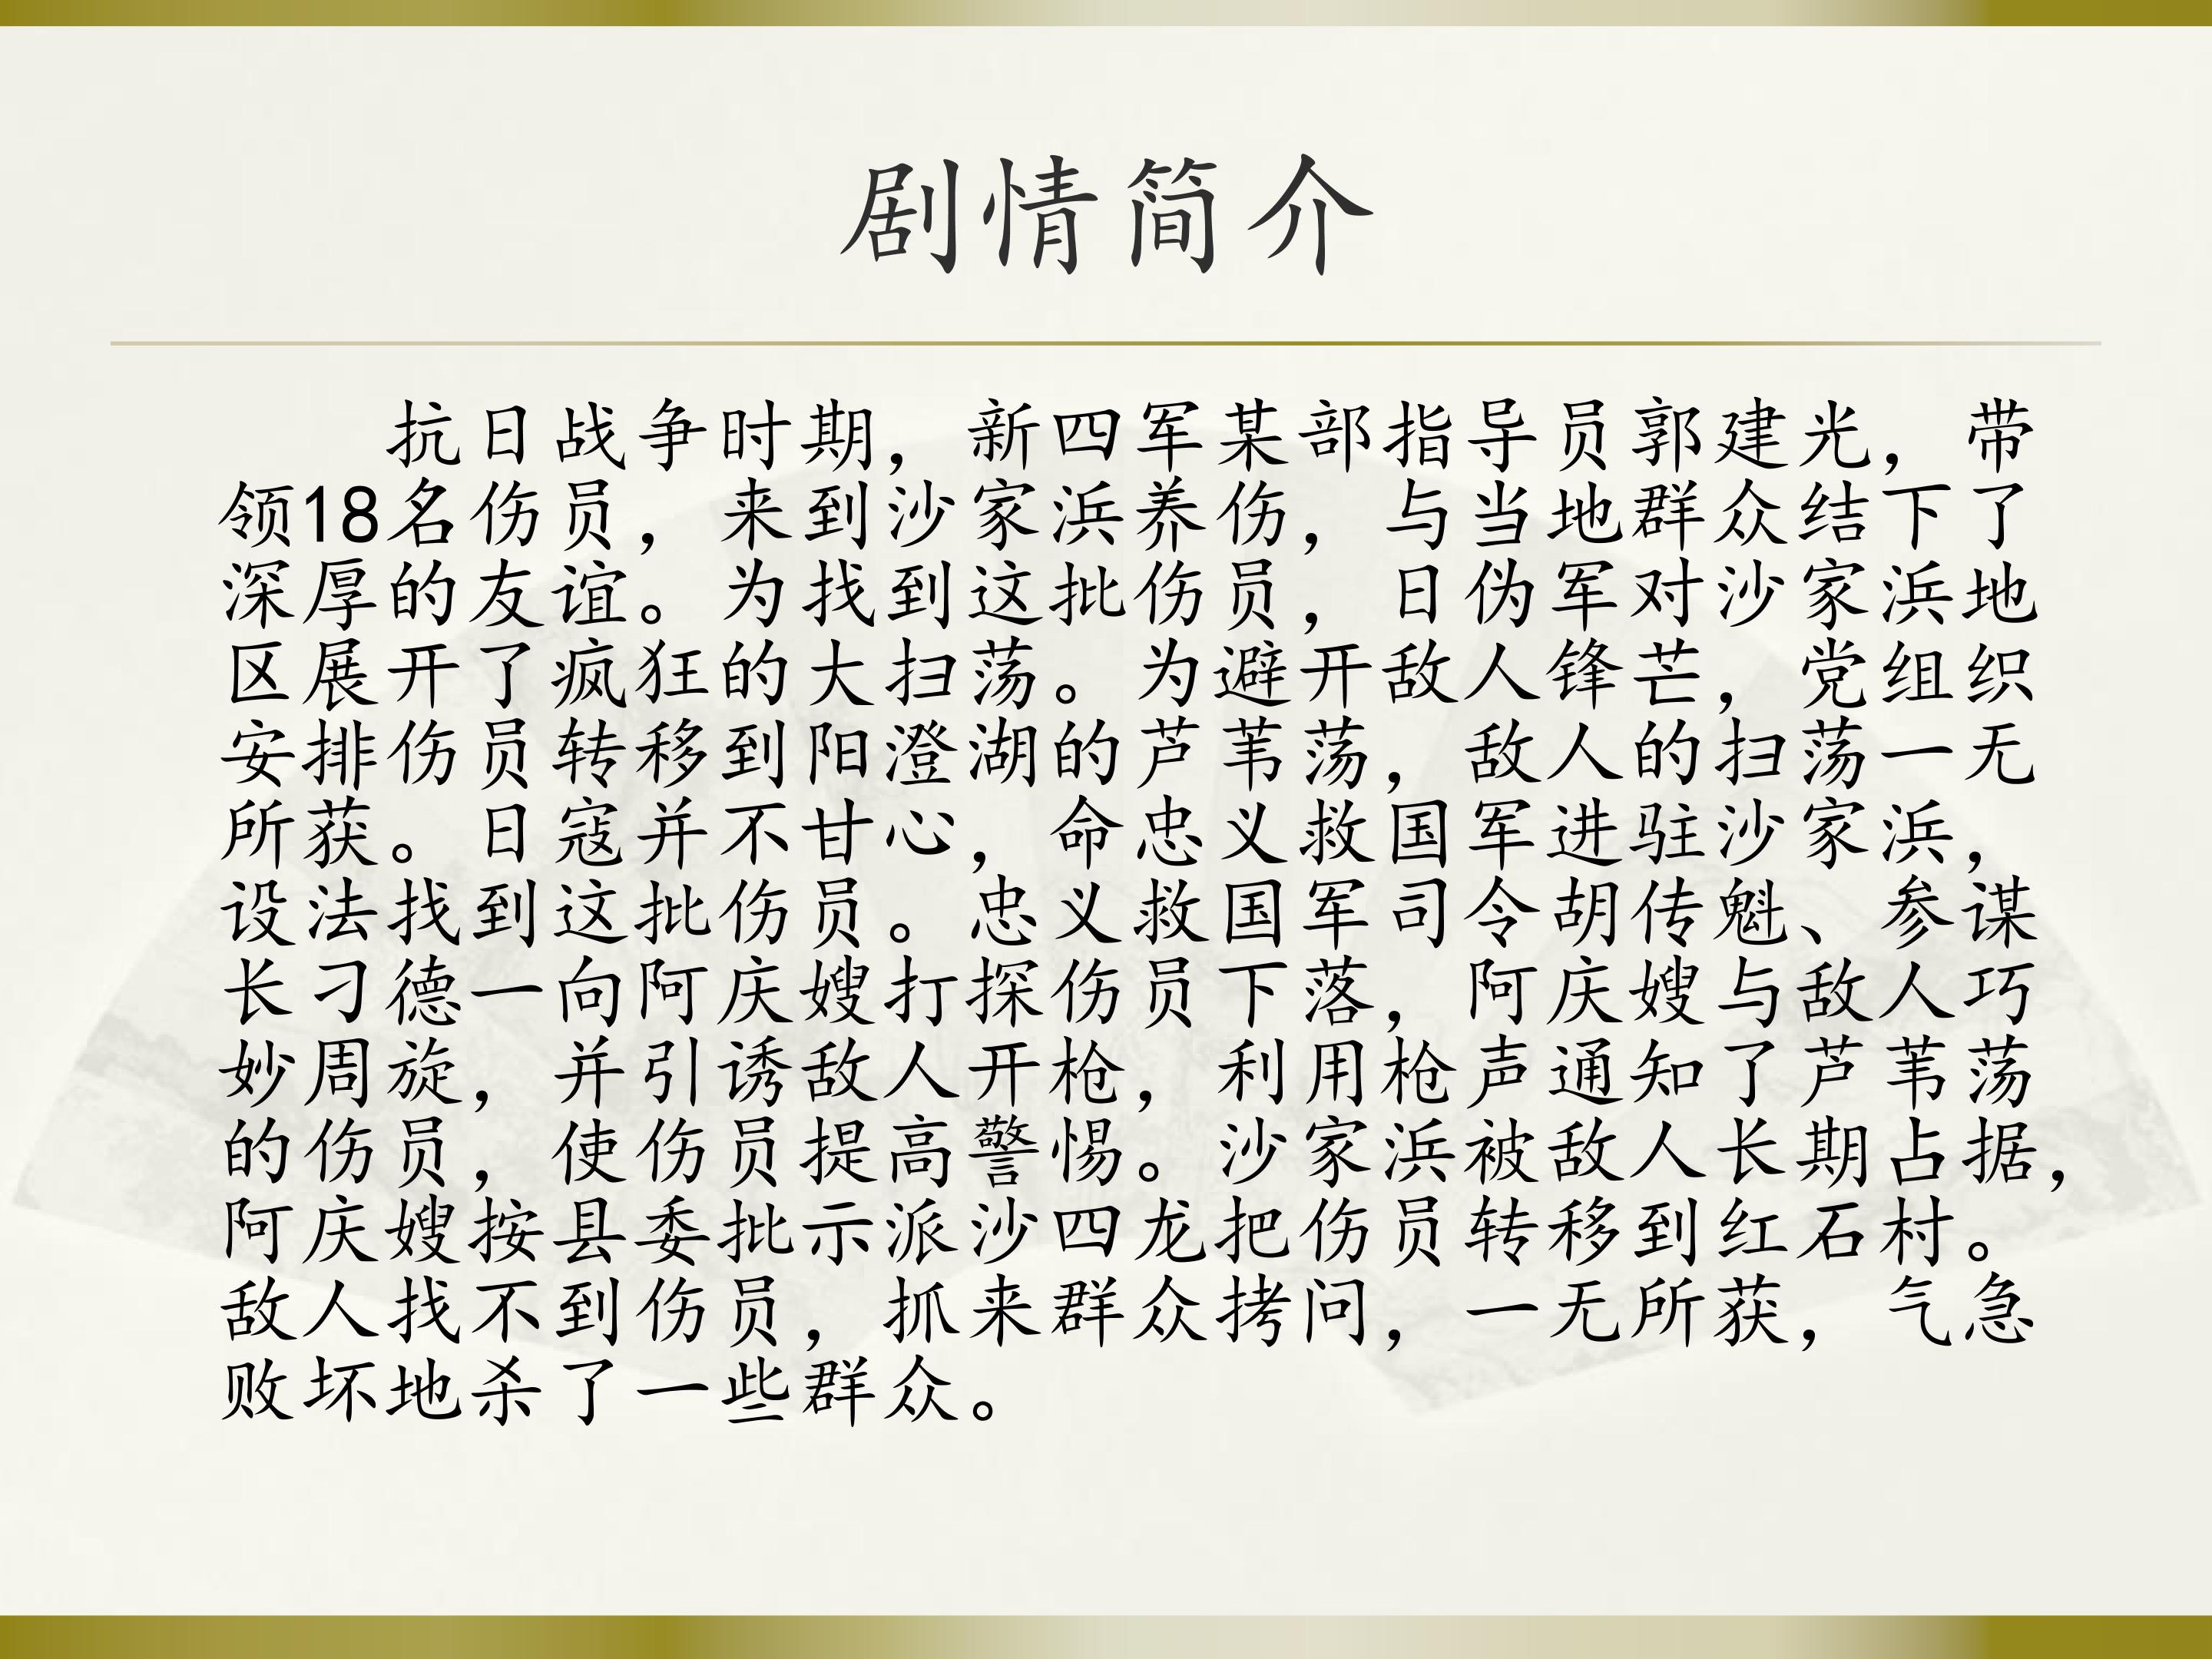 剧情简介
抗日战争时期，新四军某部指导员郭建光，带
领18名伤员，来到沙家浜养伤，与当地群众结下了
深厚的友谊。为找到这批伤员，日伪军对沙家浜地
区展开了疯狂的大扫荡。为避开敌人锋芒，党组织
安排伤员转移到阳澄湖的芦苇荡，敌人的扫荡一无
所获。日寇并不甘心，命忠义救国军进驻沙家浜，
设法找到这批伤员。忠义救国军司令胡传魁、参谋
长刁德一向阿庆嫂打探伤员下落，阿庆嫂与敌人巧
妙周旋，并引诱敌人开枪，利用枪声通知了芦苇荡
的伤员，使伤员提高警惕。沙家浜被敌人长期占据，
阿庆嫂按县委批示派沙四龙把伤员转移到红石村。
敌人找不到伤员，抓来群众拷问，一无所获，气急
败坏地杀了一些群众。